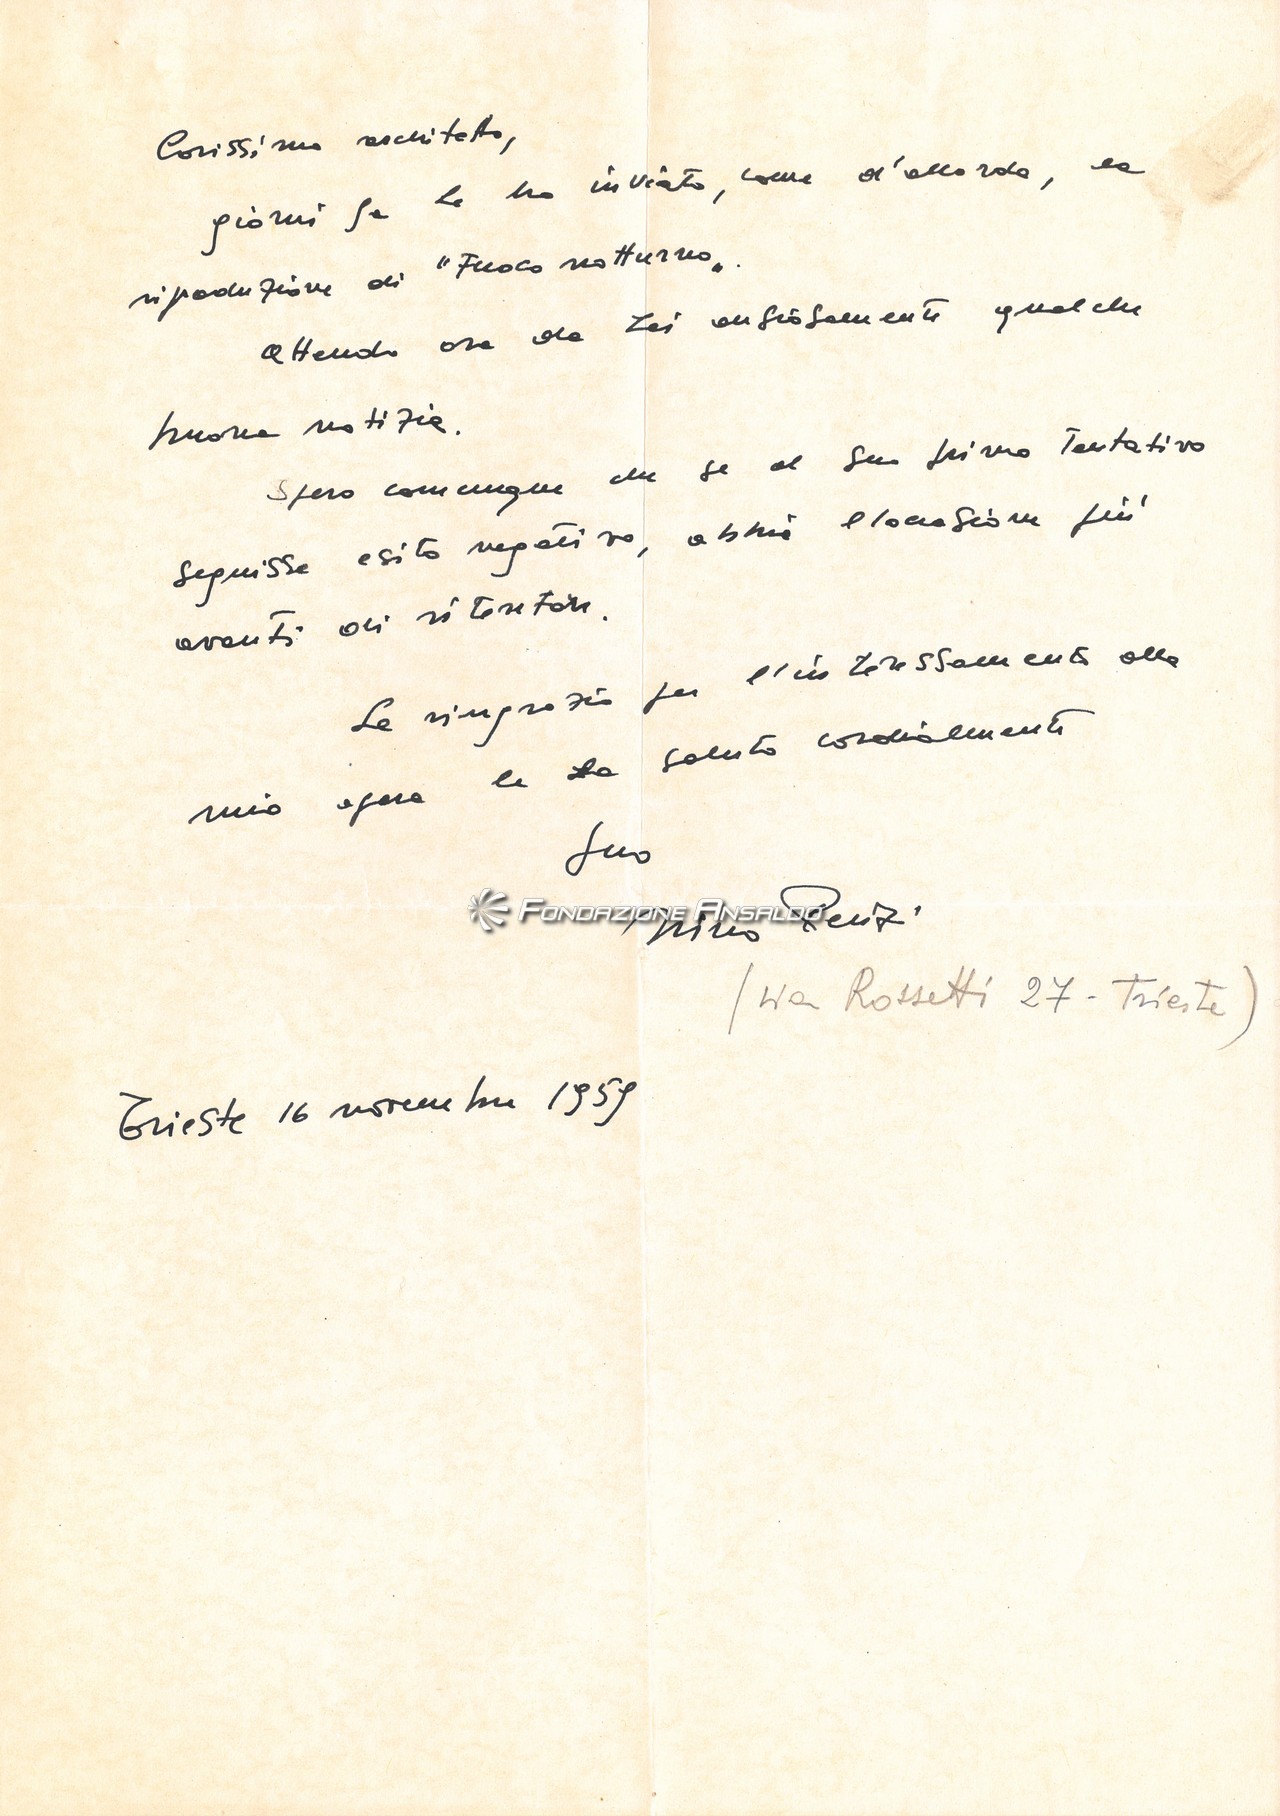 Carissimo architetto,
giorni fa Le ho inviato, come d'accordo, la
riproduzione di "Fuoco notturno".
Attendo ora da Lei ansiosamente qualche
buona notizia.
Spero comunque che se al Suo primo tentativo
seguisse esito negativo, abbia l'occasione più
avanti di ritentare.
La ringrazio per l'interessamento alla
mia opera e La saluto cordialmente
Suo
FONDAZIONE ANSALDO
Nino Perizi
(via Rossetti 27 - Trieste)
Trieste 16 novembre 1959